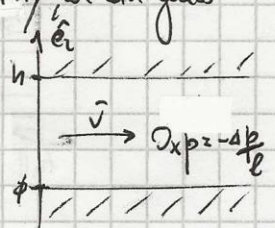 ē₂
h
v̄
∂ₓp = -Δp/l
φ